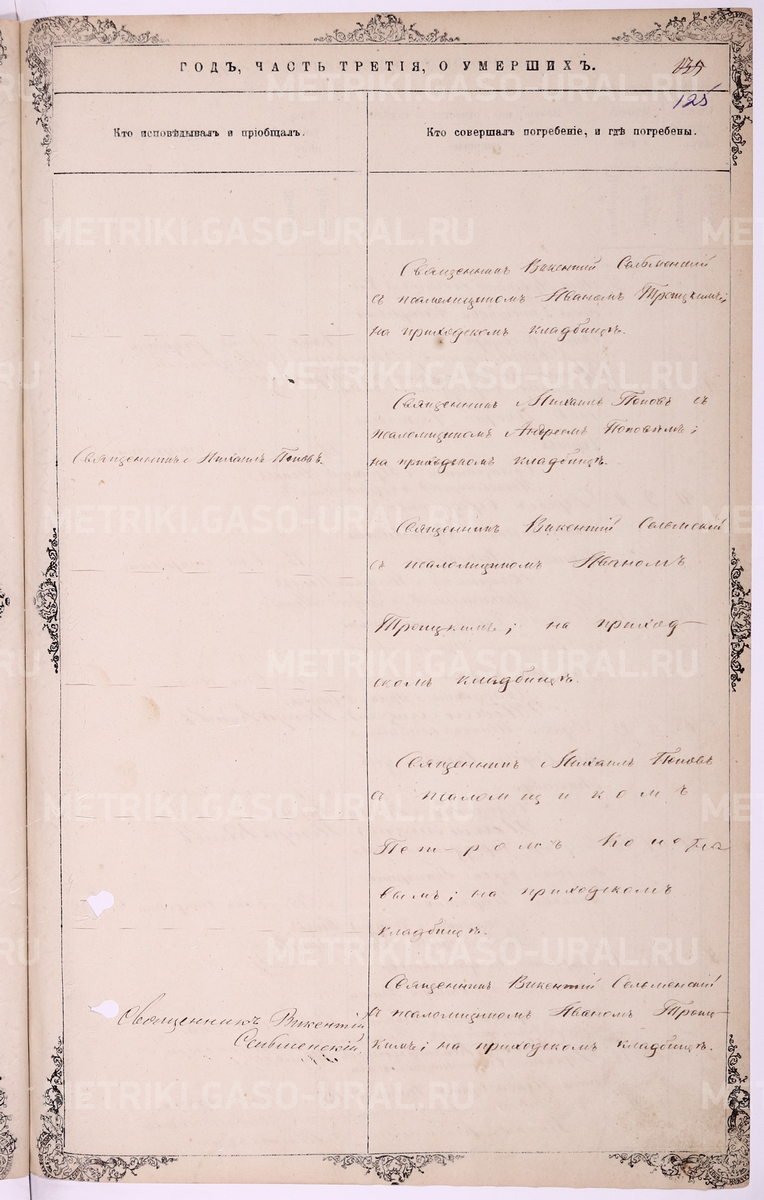 ГОДЪ, ЧАСТЬ ТРЕТІЯ, О УМЕРШИХЪ.
125
Кто исповѣдывалъ и пріобщалъ.
Кто совершалъ погребеніе, и гдѣ погребены.
METRIKI.GASO-URAL.RU
Священникъ Викентій
съ псаломщикомъ Иваномъ Троицкимъ;
на приходскомъ кладбищѣ.
Священникъ Михаилъ Поповъ съ
псаломщикомъ Андреемъ Поповымъ;
Священникъ Михаилъ Поповъ.
на приходскомъ кладбищѣ.
Священникъ Викентій
съ псаломщикомъ Иваномъ
Троицкимъ; на приход
скомъ кладбищѣ.
Священникъ Михаилъ Поповъ
съ псаломщикомъ
Петромъ
вымъ; на приходскомъ
кладбищѣ.
Священникъ Викентій
Священникъ Викентій
съ псаломщикомъ Иваномъ Троиц
кимъ; на приходскомъ кладбищѣ.